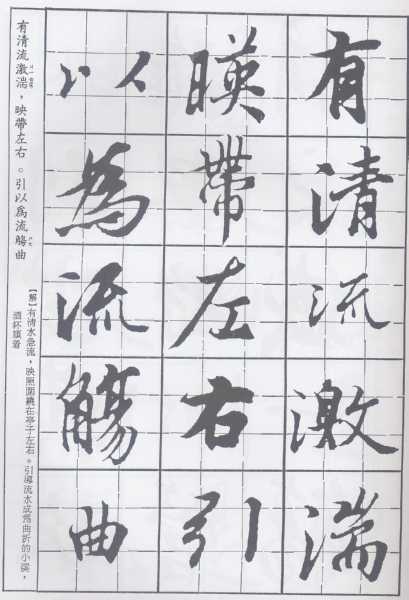 有清流激湍
暎帶左右引
以為流觴曲
有清流激湍，映帶左右。引以爲流觴曲
【解】有清水急流，映照圍繞在亭子左右。引導流水成爲曲折的小溪，
酒杯順着